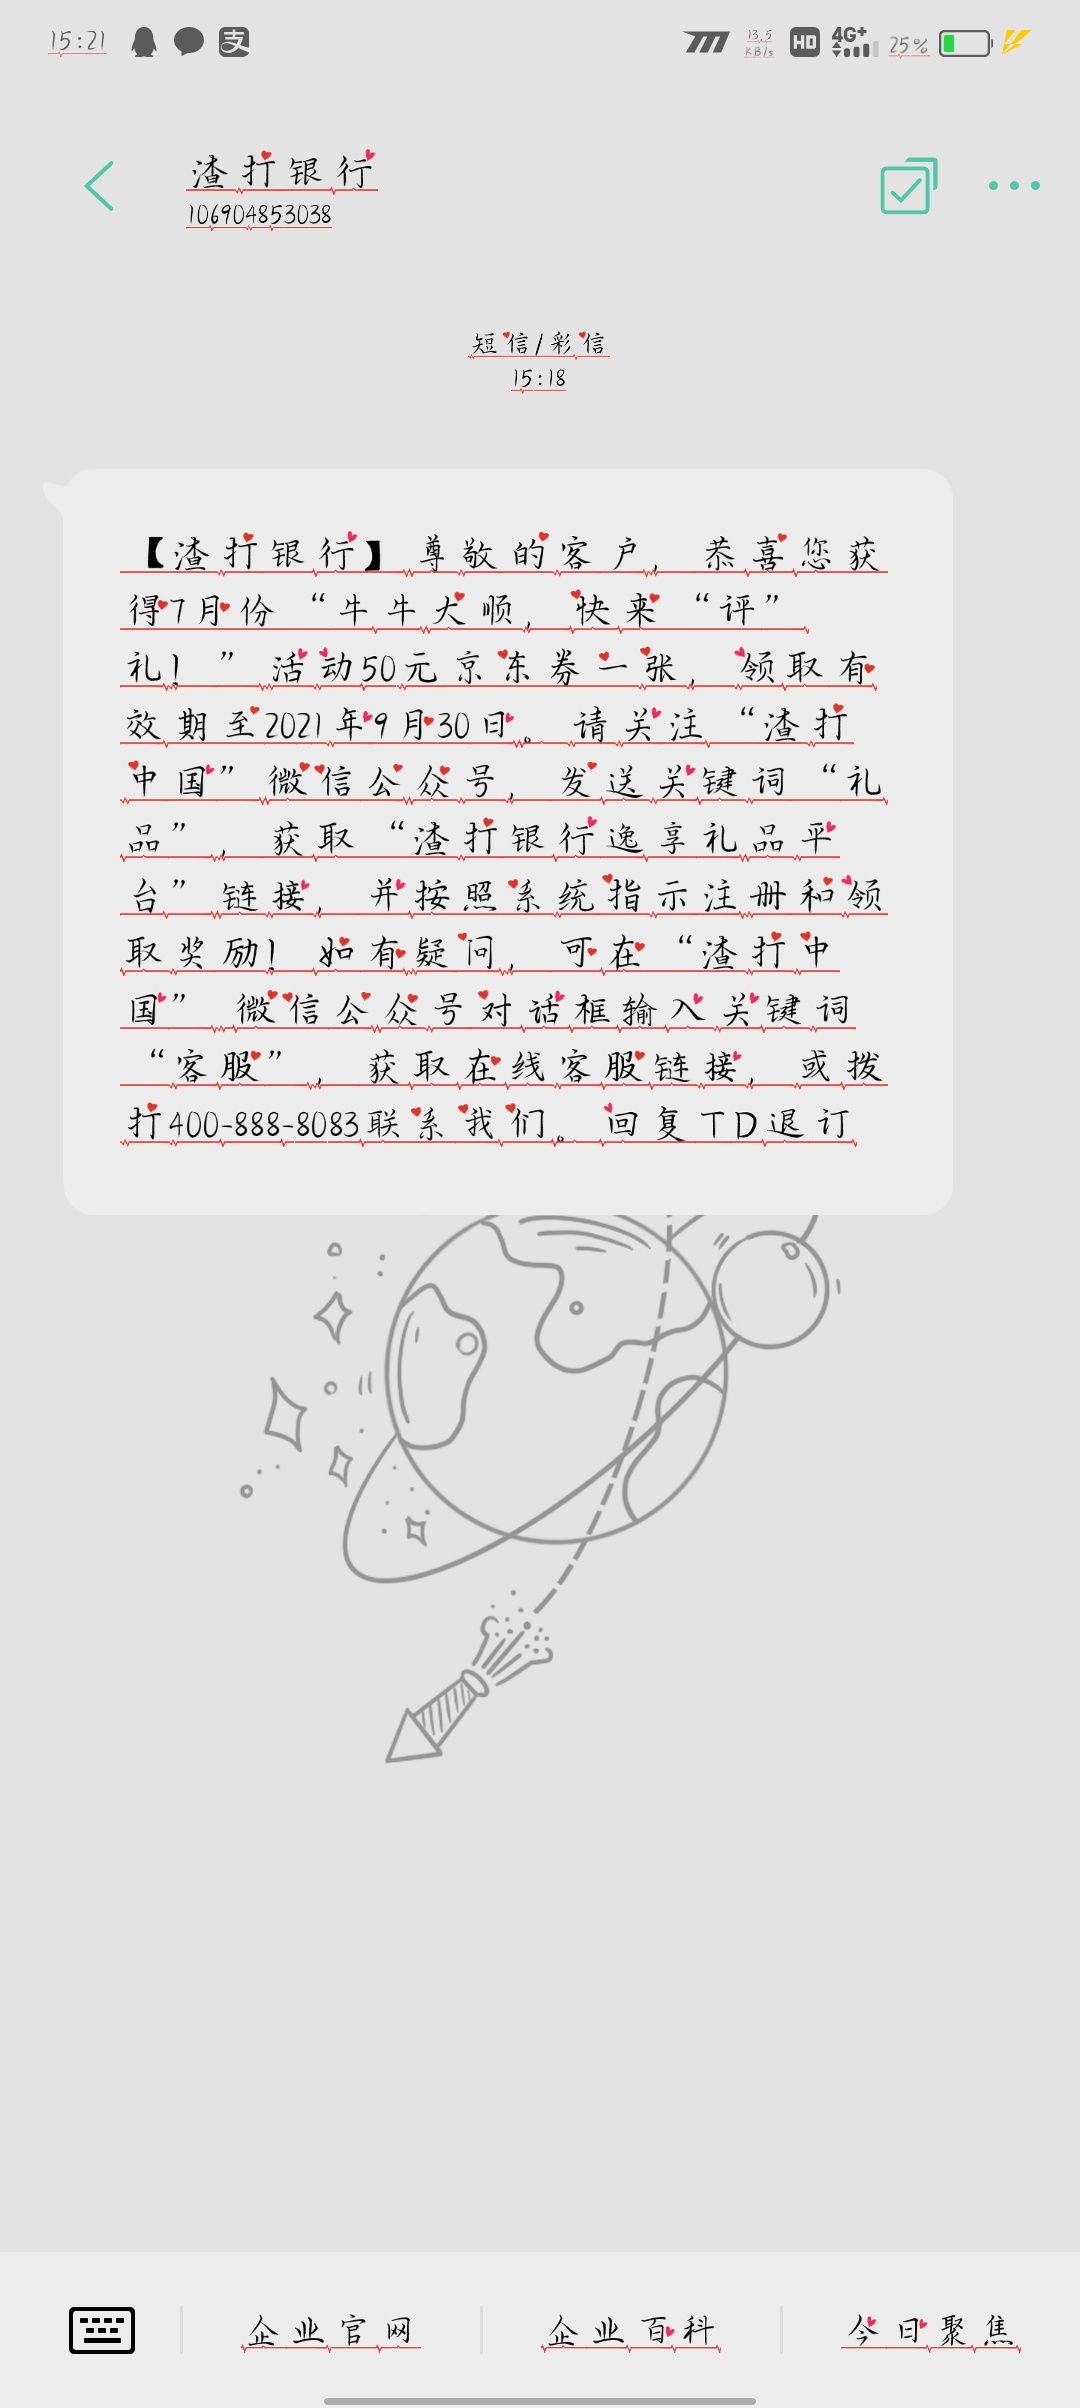 15:21
支
13.5
KB/s
HD
4G+
25%
渣打银行
106904853038
短信/彩信
15:18
【渣打银行】尊敬的客户，恭喜您获
得7月份“牛牛大顺，快来“评”
礼！”活动50元京东券一张，领取有
效期至2021年9月30日。请关注“渣打
中国”微信公众号，发送关键词“礼
品”，获取“渣打银行逸享礼品平
台”链接，并按照系统指示注册和领
取奖励！如有疑问，可在“渣打中
国”微信公众号对话框输入关键词
“客服”，获取在线客服链接，或拨
打400-888-8083联系我们。回复TD退订
企业官网
企业百科
今日聚焦